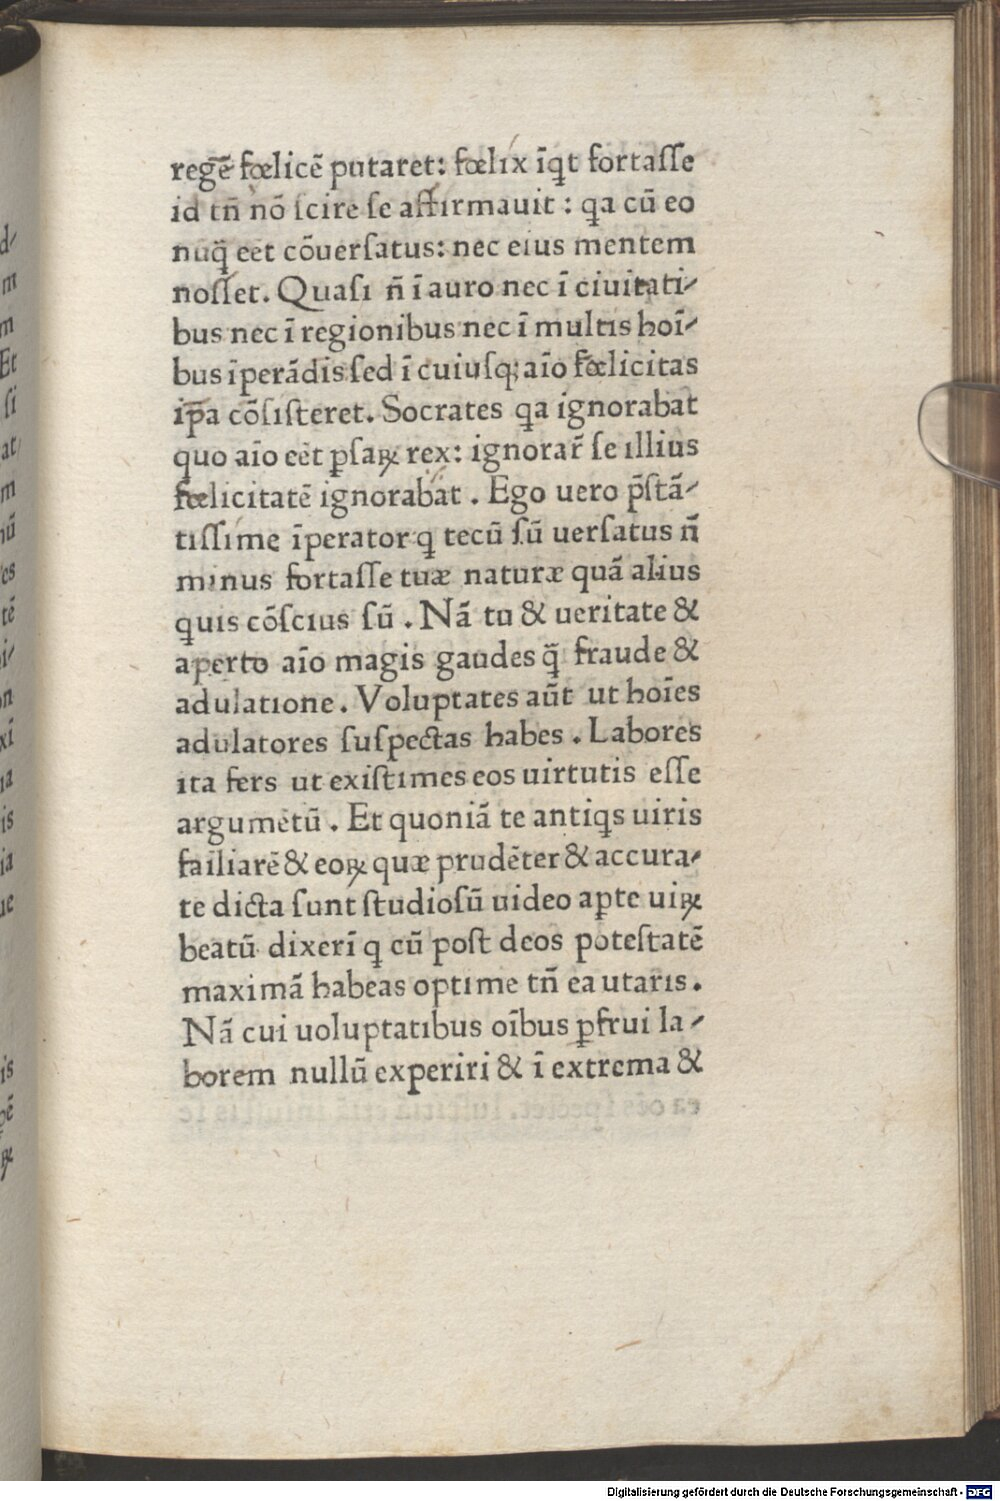 regē fœlicē putaret: fœlix īqt fortasſe
id tñ nō ſcire ſe affirmauit : qa cū eo
nuq̄ eēt cōuerſatus: nec eius mentem
noſſet. Quaſi ñ ī auro nec ī ciuitati-
bus nec ī regionibus nec ī multis hoī-
bus īperādis ſed ī cuiuſq; aīo fœlicitas
ip̄a cōſiſteret. Socrates qa ignorabat
quo aīo eēt pſaꝝ rex: ignorar̄ ſe illius
fœlicitatē ignorabat. Ego uero p̄ſtā-
tiſſime īperator q tecū ſū uerſatus ñ
minus fortaſſe tuæ naturæ quā alius
quis cōſcius ſū. Nā tu & ueritate &
aperto aīo magis gaudes q̄ fraude &
adulatione. Voluptates aūt ut hoīes
adulatores ſuſpectas habes. Labores
ita fers ut exiſtimes eos uirtutis eſſe
argumētū. Et quoniā te antiqs uiris
failiarē & eoꝝ quæ prudēter & accura-
te dicta ſunt ſtudioſū uideo aꝑte uiꝝ
beatū dixerī q cū poſt deos poteſtatē
maximā habeas optime tñ ea utaris.
Nā cui uoluptatibus oībus ꝑfrui la-
borem nullū experiri & ī extrema &
Digitalisierung gefördert durch die Deutsche Forschungsgemeinschaft - DFG